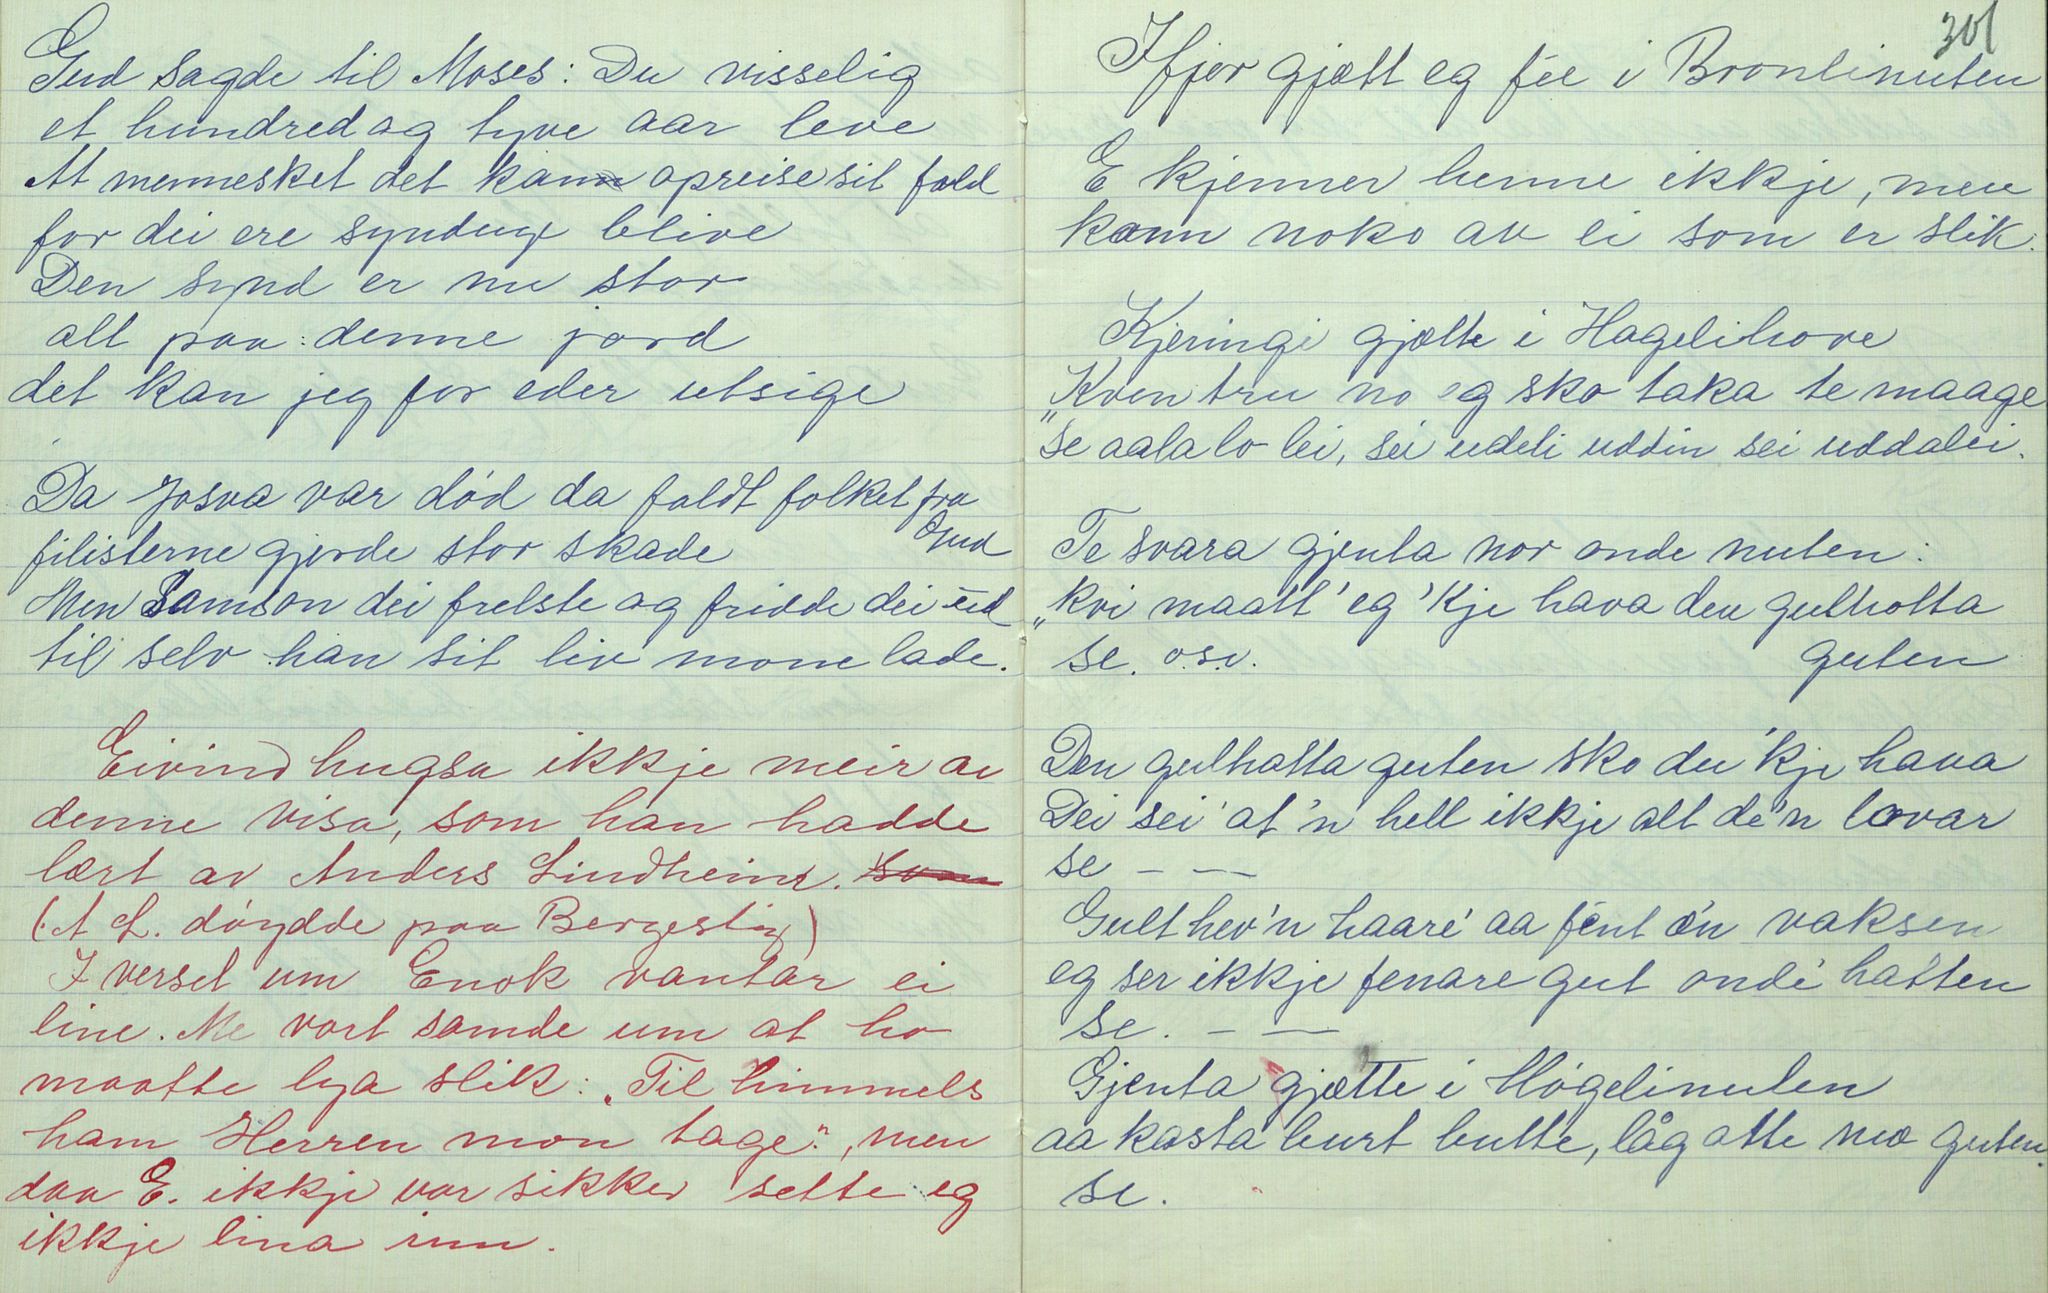 Gud sagde til Moses: Du visselig
et hundred og tyve aar leve
At mennesket det kann opreise sit fald
for dei ere syndige blive
Den synd er nu stor
alt paa denne jord
det kan jeg for eder utsige
Da Josva var död da faldt folket fra Gud
filisterne gjorde stor skade
Men Samson dei frelste og fridde dei ud
til selv han sit liv mone lade.
Eivind hugsa ikkje meir av
denne visa, som han hadde
lært av Anders Lindheim. som
(A L. döydde paa Bergestig)
I verset um Enok vantar ei
line. Me vort samde um at ho
maatte lya slik: "Til himmels
ham Herren mon tage", men
daa E. ikkje var sikker sette eg
ikkje lina inn.
301
Ifjor gjætt eg fée i Bronlinuten
E kjenner henne ikkje, men
kann noko av ei som er slik.
Kjeringi gjætte i Hagelihove
"Kven tru no eg sko taka te maage
se aala lo lei, sei udeli uddin sei uddalei.
Te svara gjenta nor onde nuten:
"kvi maatt' eg 'kje hava den gulhatta guten
se. o.s.v.
Den gulhatta guten sko du 'kje hava
Dei sei' at 'n hell ikkje alt de'n lovar
se — —
Gult hev'n haare' aa fént e'n vaksen
eg ser ikkje fenare gut onde' hatten
se. — —
Gjenta gjætte i Högelinuten
aa kasta burt butte, låg atte mæ guten.
se.